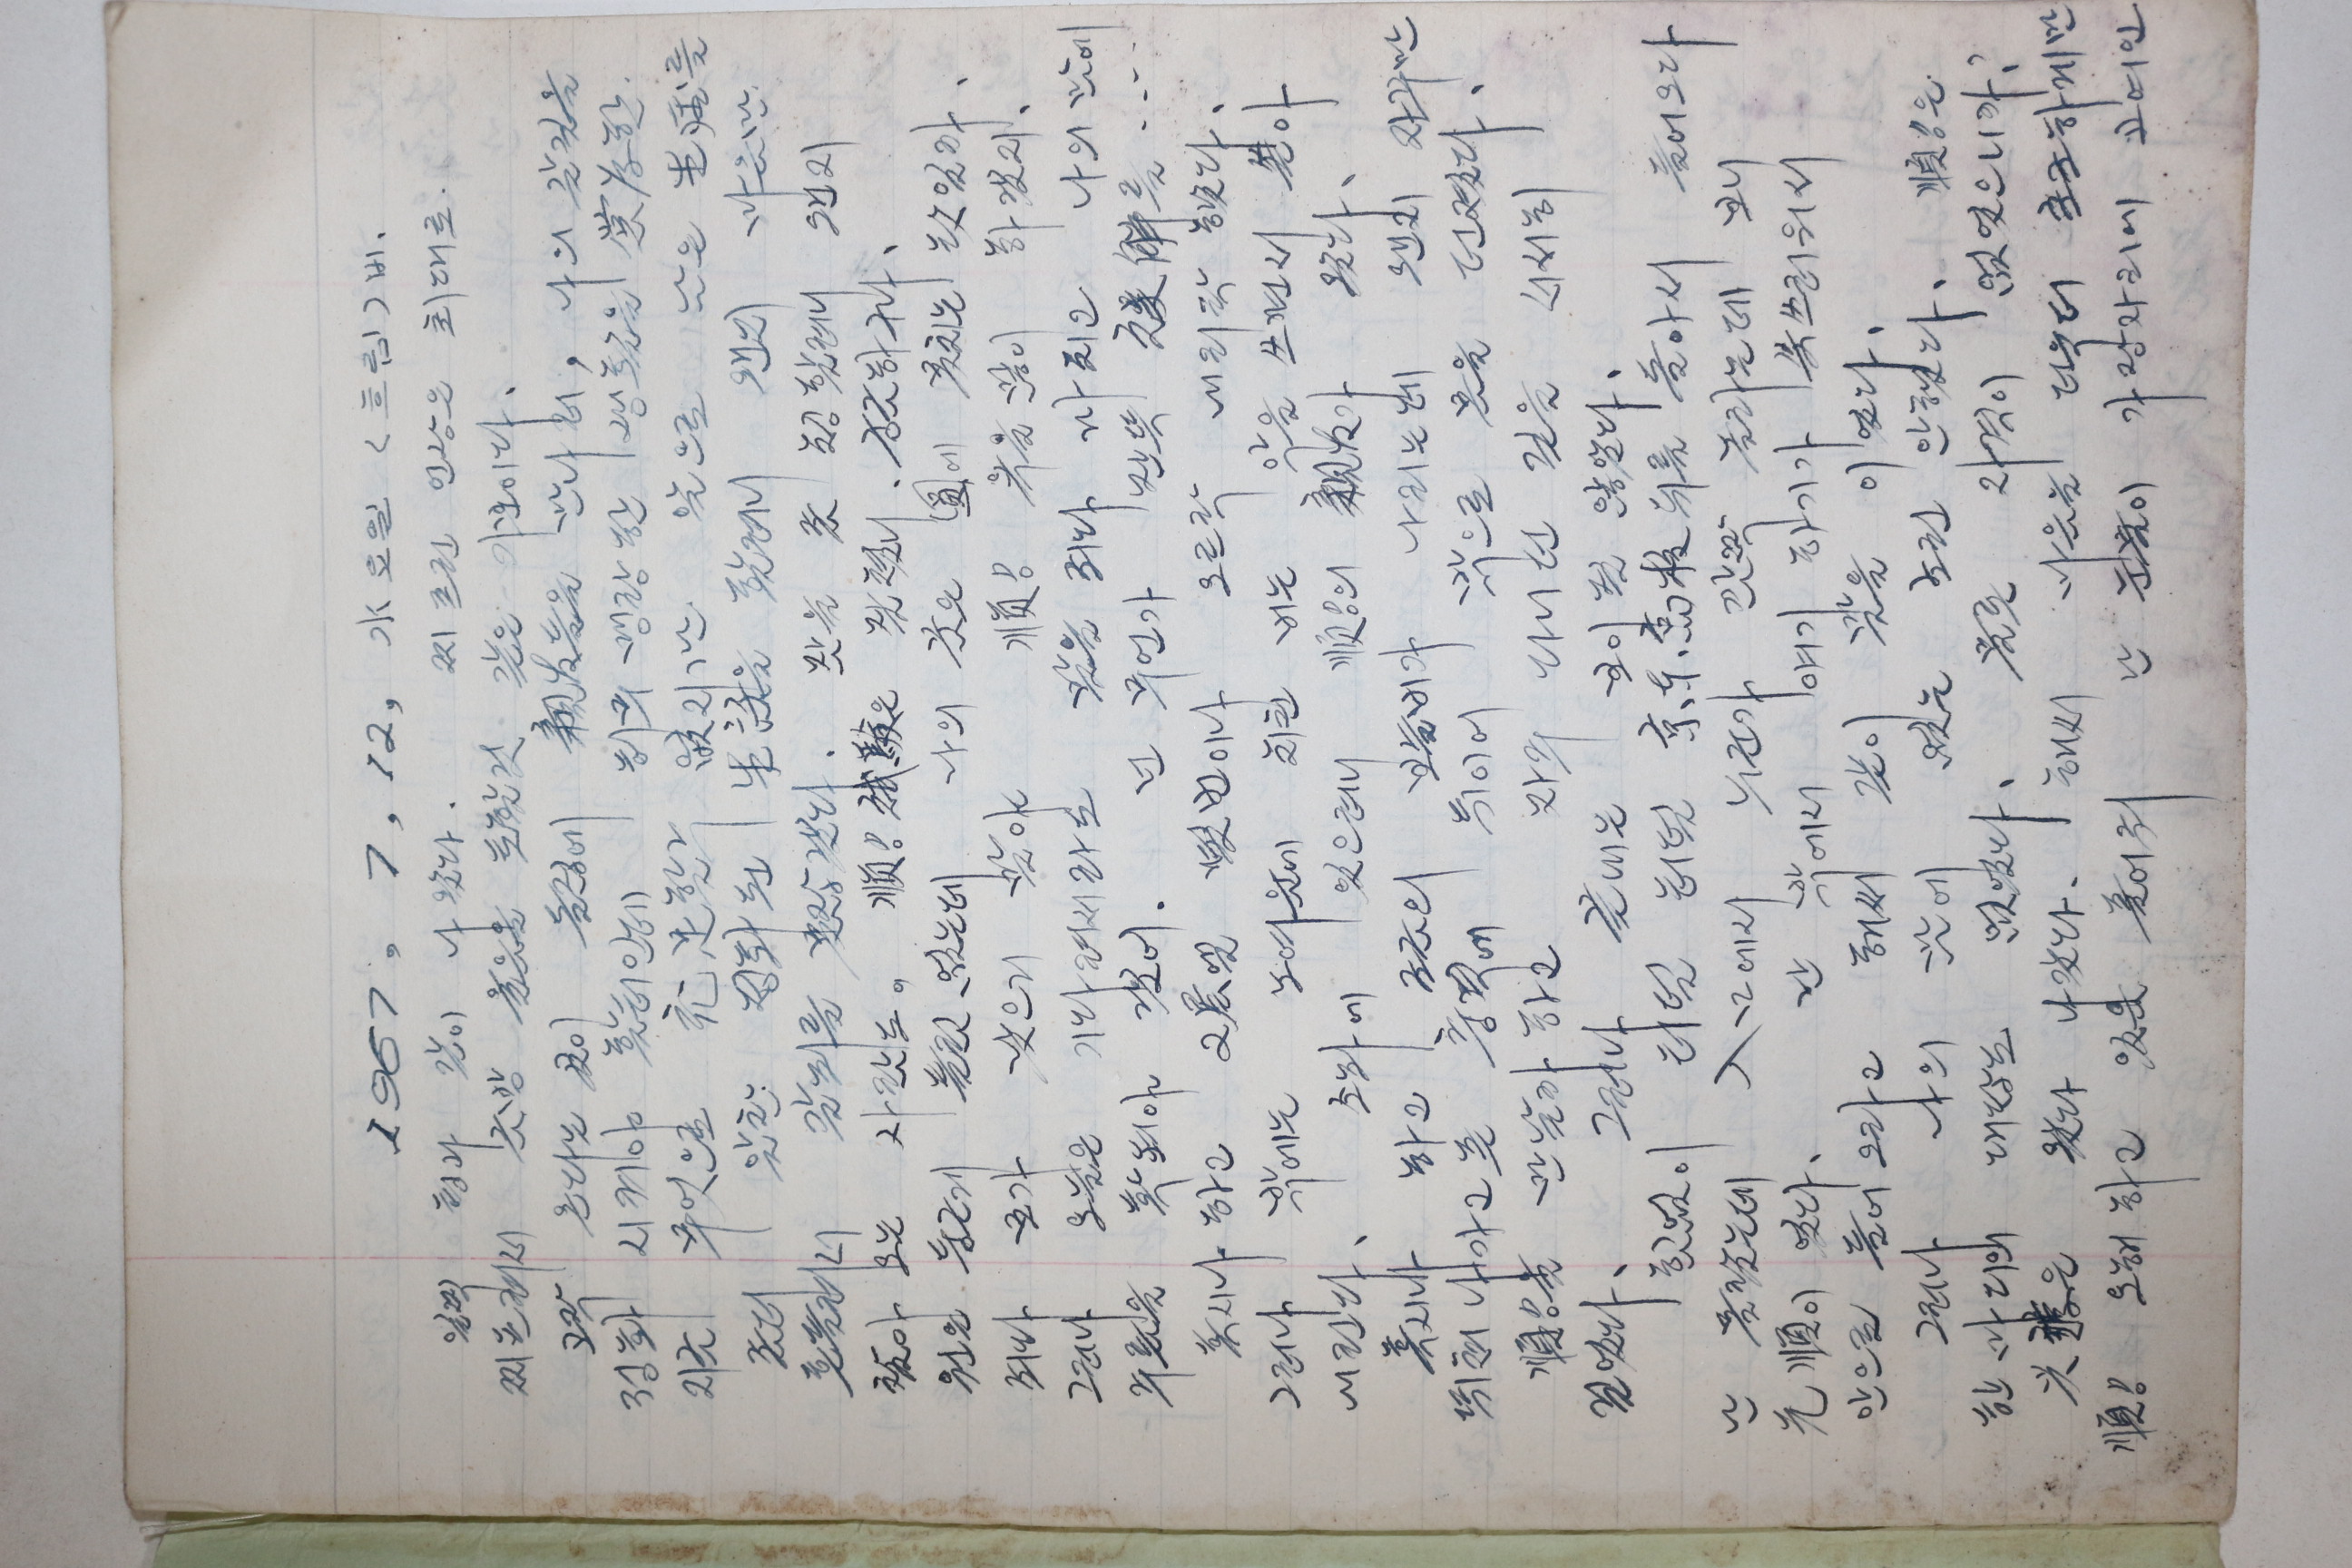 1967, 7, 12, 水요일 <흐림> 비.
일찍 형과 같이 나왔다. 찌프린 인상은 최대로.
찌프려서 금방 울음을 토할것 같은 기분이다.
꼬박 온다는 것이 농장에 親友들을 만나러, 나의 갈길을
정화 시켜야 할터인데 허무 맹랑한 생활을 當分한.
지금 무엇으로 充足할수 없지만 앞으로 남은 生活를
좀더 알찬 정화된 生活을 할려니 왠지 마음만
흔들려서 갈피를 못잡겠다. 맛을 좀 청할려니 왠지
찾아 오는 사람도. 順!試驗은 잘쳤니. 궁금하구나.
원은 둥글게 틀림 없는데 나의 꿈은 圓에 못치는 것일까.
죄다 모가 낮으리 많아 順! 욕을 많이 하겠지.
그러나 오늘은 기다려서라도 말을 죄다 마치고 나의 말에
수를을 확 되야 겠어. 넌 무언가 잔뜩 誤解를 ....
혹시나 하고 2層엘 몇번이나 오르락 내리락 했다.
그러나 밖에는 노여움에 취한 비는 악을 쓰면서 쏟아
내린다. 소파에 있으려니 順!의 親友가 왔다.
혹시나 하고 조금의 보슬비가 나리는데 왠지 자꾸만
뛰쳐나가고픈 충격에 뛰이어 밖으로 몸을 던졌다.
順!을 만날까 하고 자주 다니던 길을 서서히
걸었다. 그러나 끝내는 보이질 않았다.
힘없이 터덜 터덜 京東高校 뒤를 돌아서 들어오다
난 몰랐는데 入口에서 누군가 깜짝 놀라는데 보니
光順이 였다. 난 밖에서 얘기 하기가 쑥쓰러워서
안으로 들어오라고 해써 같이 말을 이었다.
그러나 나의 말에 있는 조련 안했다. 順!은
한 마디의 대답도 없었다. 물론 자격이 없었으니까?
은 왔다 나갔다. 해써 마음을 더욱더 초조하게만
順! 오해 하고 있을 풀어줘 난 눈물이 가장자리에 고여인